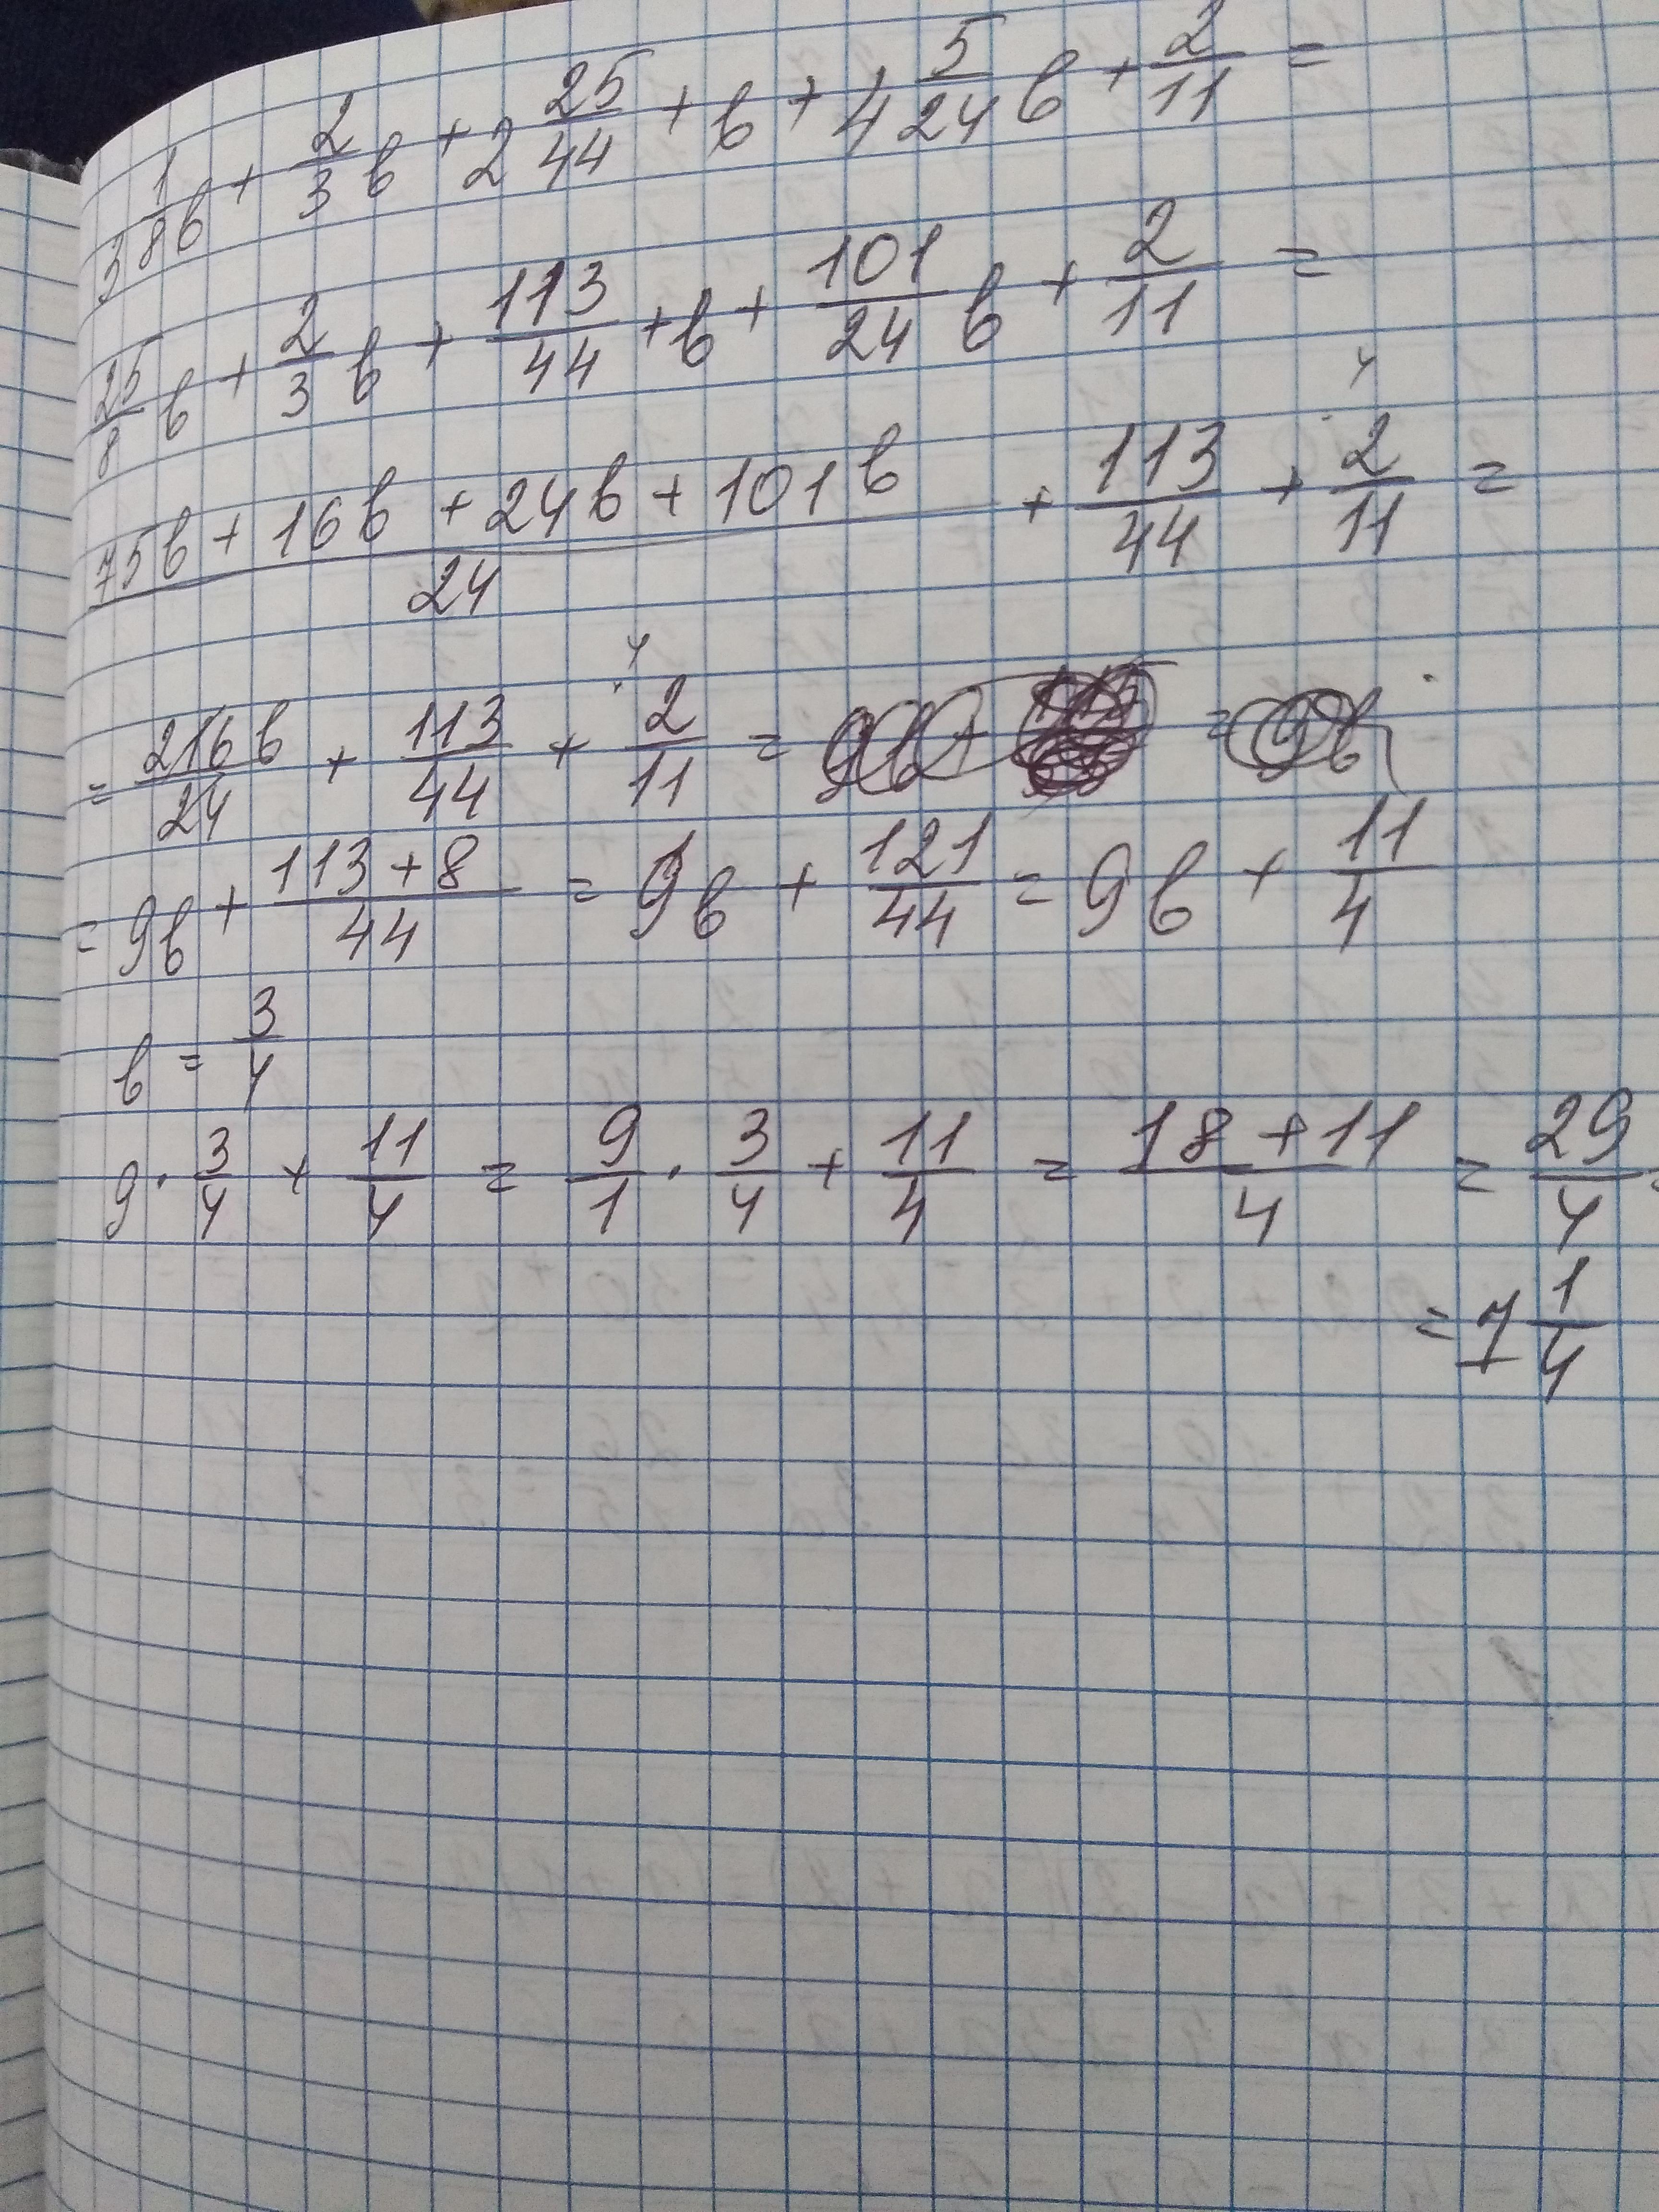 3 1/8 в + 2/3 в + 2 25/44 + в + 4 5/24 в + 2/11 =
25/8 в + 2/3 в + 113/44 + в + 101/24 в + 2/11 =
(75в + 16в + 24в + 101в)/24 + 113/44 + 2/11 =
= 216в/24 + 113/44 + 2/11 =
= 9в + (113 + 8)/44 = 9в + 121/44 = 9в + 11/4
в = 3/4
9 · 3/4 + 11/4 = 9/1 · 3/4 + 11/4 = (18 + 11)/4 = 29/4 =
= 7 1/4